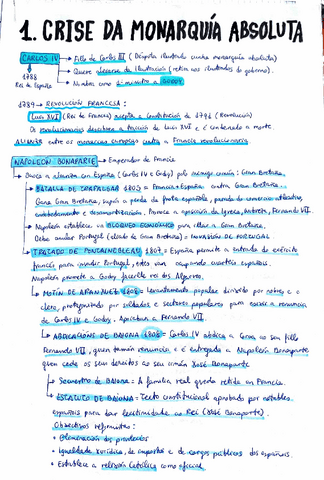 1. CRISE DA MONARQUÍA ABSOLUTA
CARLOS IV → Fillo de Carlos III (Déspota ilustrado cunha monarquía absoluta)
→ Quere da Ilustración (retira aos ilustrados do goberno).
1788 → Nomba como 1º ministro a GODOY
Rei de España
1789 → REVOLUCIÓN FRANCESA:
Luis XVI (Rei de Francia) acepta a Constitución de 1791 (Revolución)
Os revolucionarios descobren a traizón de Luis XVI, e é condenado a morte.
ALIANZA entre os monarcas europeos contra a Francia revolucionaria
NAPOLEÓN BONAPARTE → Emperador de Francia
→ Busca a alianza con España (Carlos IV e Godoy) polo inimigo común: Gran Bretaña.
→ BATALLA DE TRAFALGAR 1805 = Francia + España contra Gran Bretaña.
Gana Gran Bretaña, supón a perda da frota española, perda de comercio atlántico,
endebedamento e desamortización. Provoca a oposición da Igrexa, nobreza, Fernando VII.
→ Napoleón establece un BLOQUEO ECONÓMICO para illar a Gran Bretaña.
Debe invadir Portugal (aliado de Gran Bretaña) = INVASIÓN DE PORTUGAL
→ TRATADO DE FONTAINEBLEAU 1807 = España permite a entrada do exército
francés para invadir Portugal, estes van ocupando cuarteis españois.
Napoleón promete a Godoy facerlle rei dos Algarves.
→ MOTÍN DE ARANJUEZ 1808 = Levantamento popular dirixido por nobres e o
clero, protagonizado por soldados e sectores populares para esixir a renuncia
de Carlos IV e Godoy. Apoiaban a Fernando VII.
→ ABDICACIÓNS DE BAIONA 1808 = Carlos IV abdica a Coroa ao seu fillo
Fernando VII, quen tamén renuncia e é entregada a Napoleón Bonaparte
quen cede os seus dereitos ao seu irmán Xosé Bonaparte
→ Secuestro de Baiona: A familia real queda retida en Francia.
→ ESTATUTO DE BAIONA: Texto constitucional aprobado por notables
españois para dar lexitimidade ao Rei (Xosé Bonaparte).
Obxectivos reformistas:
• Eliminación dos privilexios
• Igualdade xurídica, de impostos e de cargos públicos dos españois.
• Establece a relixión Católica como oficial